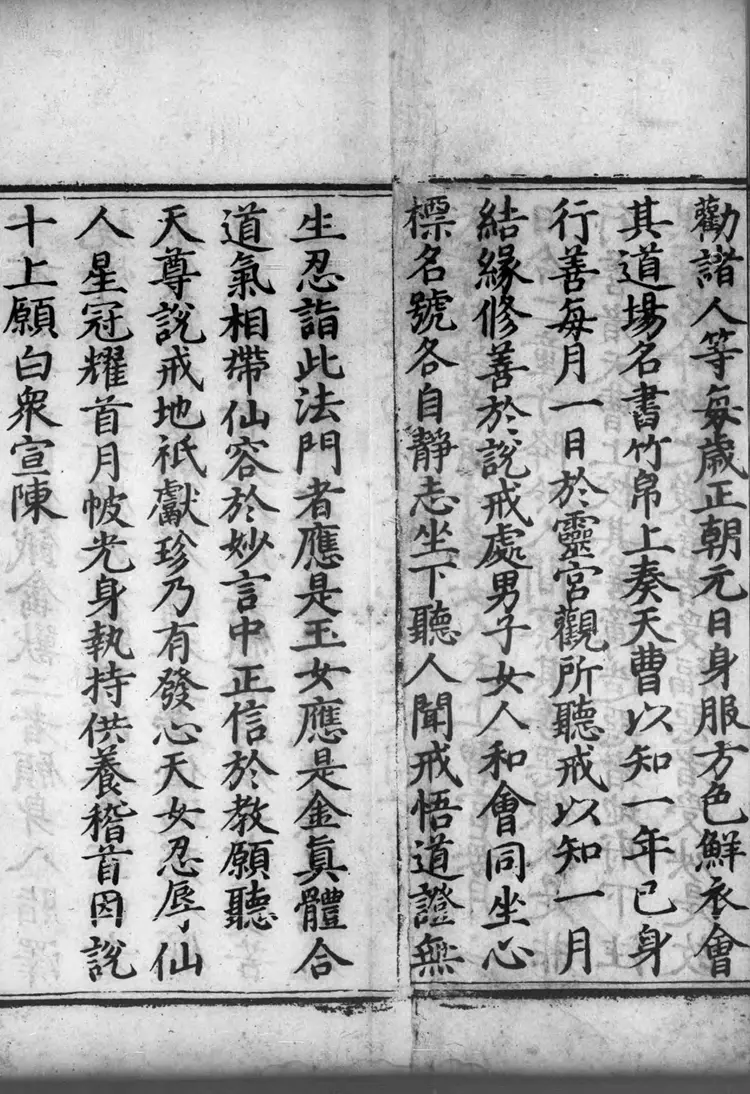 勸諸人等每歲正朝元日身服方色鮮衣會
其道場名書竹帛上奏天曹以知一年已身
行善每月一日於靈宮觀所聽戒以知一月
結緣修善於說戒處男子女人和會同坐心
標名號各自靜志坐下聽人聞戒悟道證無
生忍詣此法門者應是玉女應是金眞體合
道氣相帶仙容於妙言中正信於教願聽
天尊說戒地祇獻珍乃有發心天女忍辱仙
人星冠耀首月帔光身執持供養稽首因說
十上願白衆宣陳